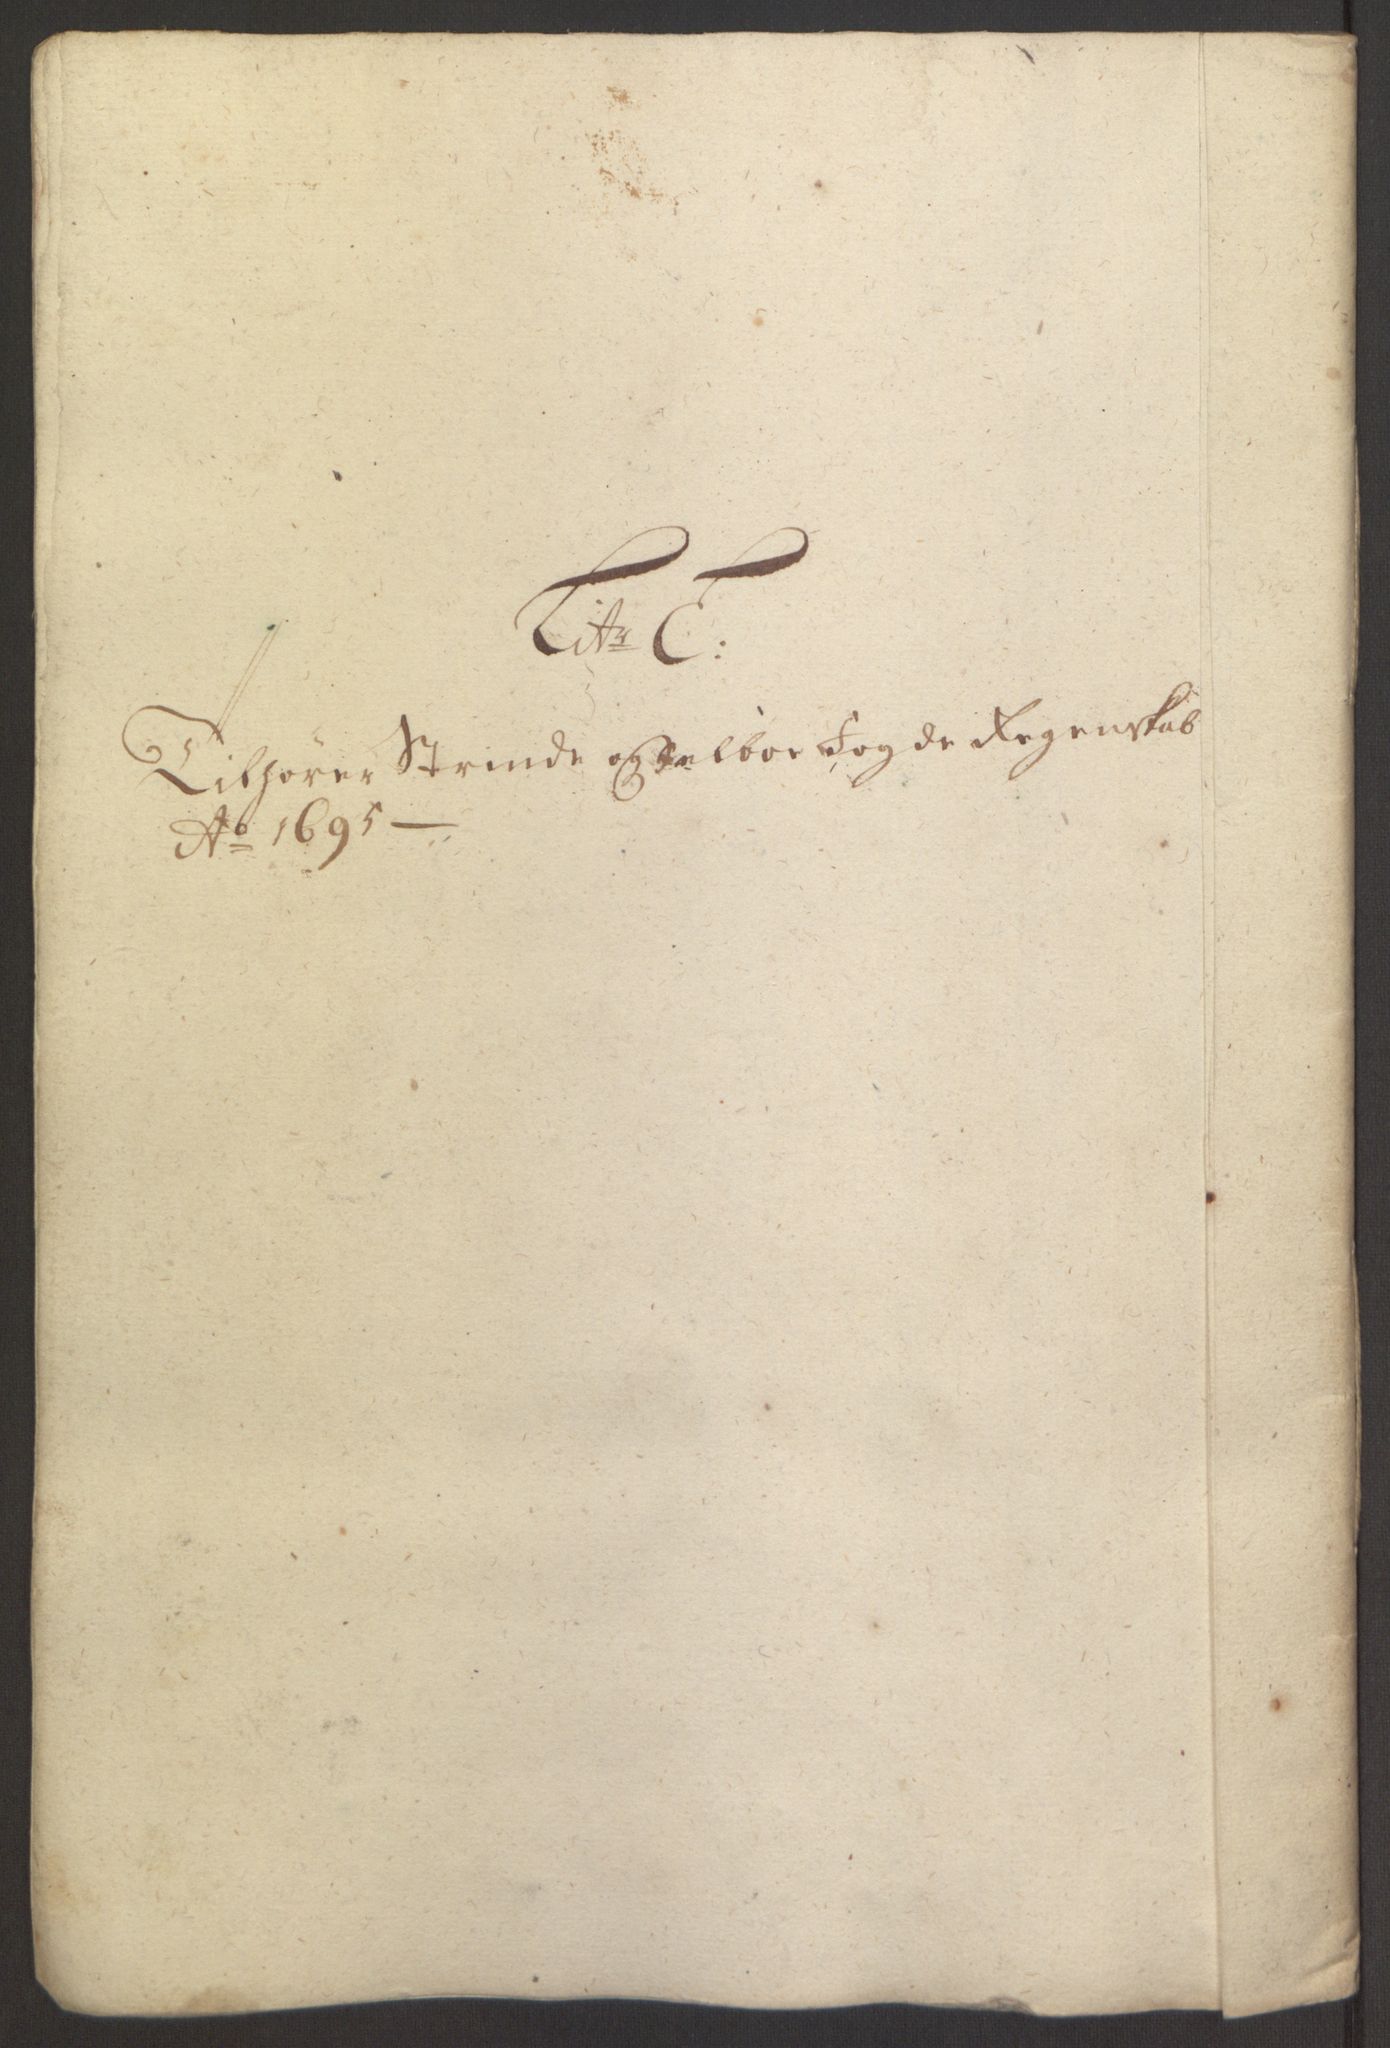 Litr C:
Tilhører Strinde og Selboe Fogde Regenskab
Ao 1695 —